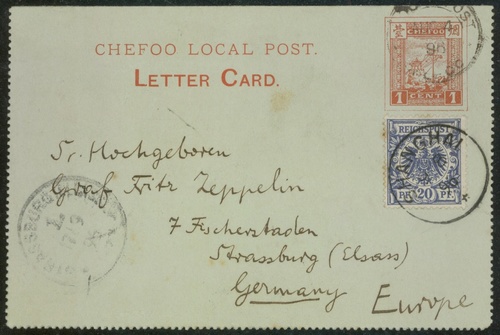 CHEFOO LOCAL POST.
LETTER CARD.
1 CENT 1
REICHSPOST
PF 20 PF
SHANGHAI
Sr. Hochgeboren
Graf Fritz Zeppelin
7 Fischerstaden
Strassburg (Elsass)
Germany Europe